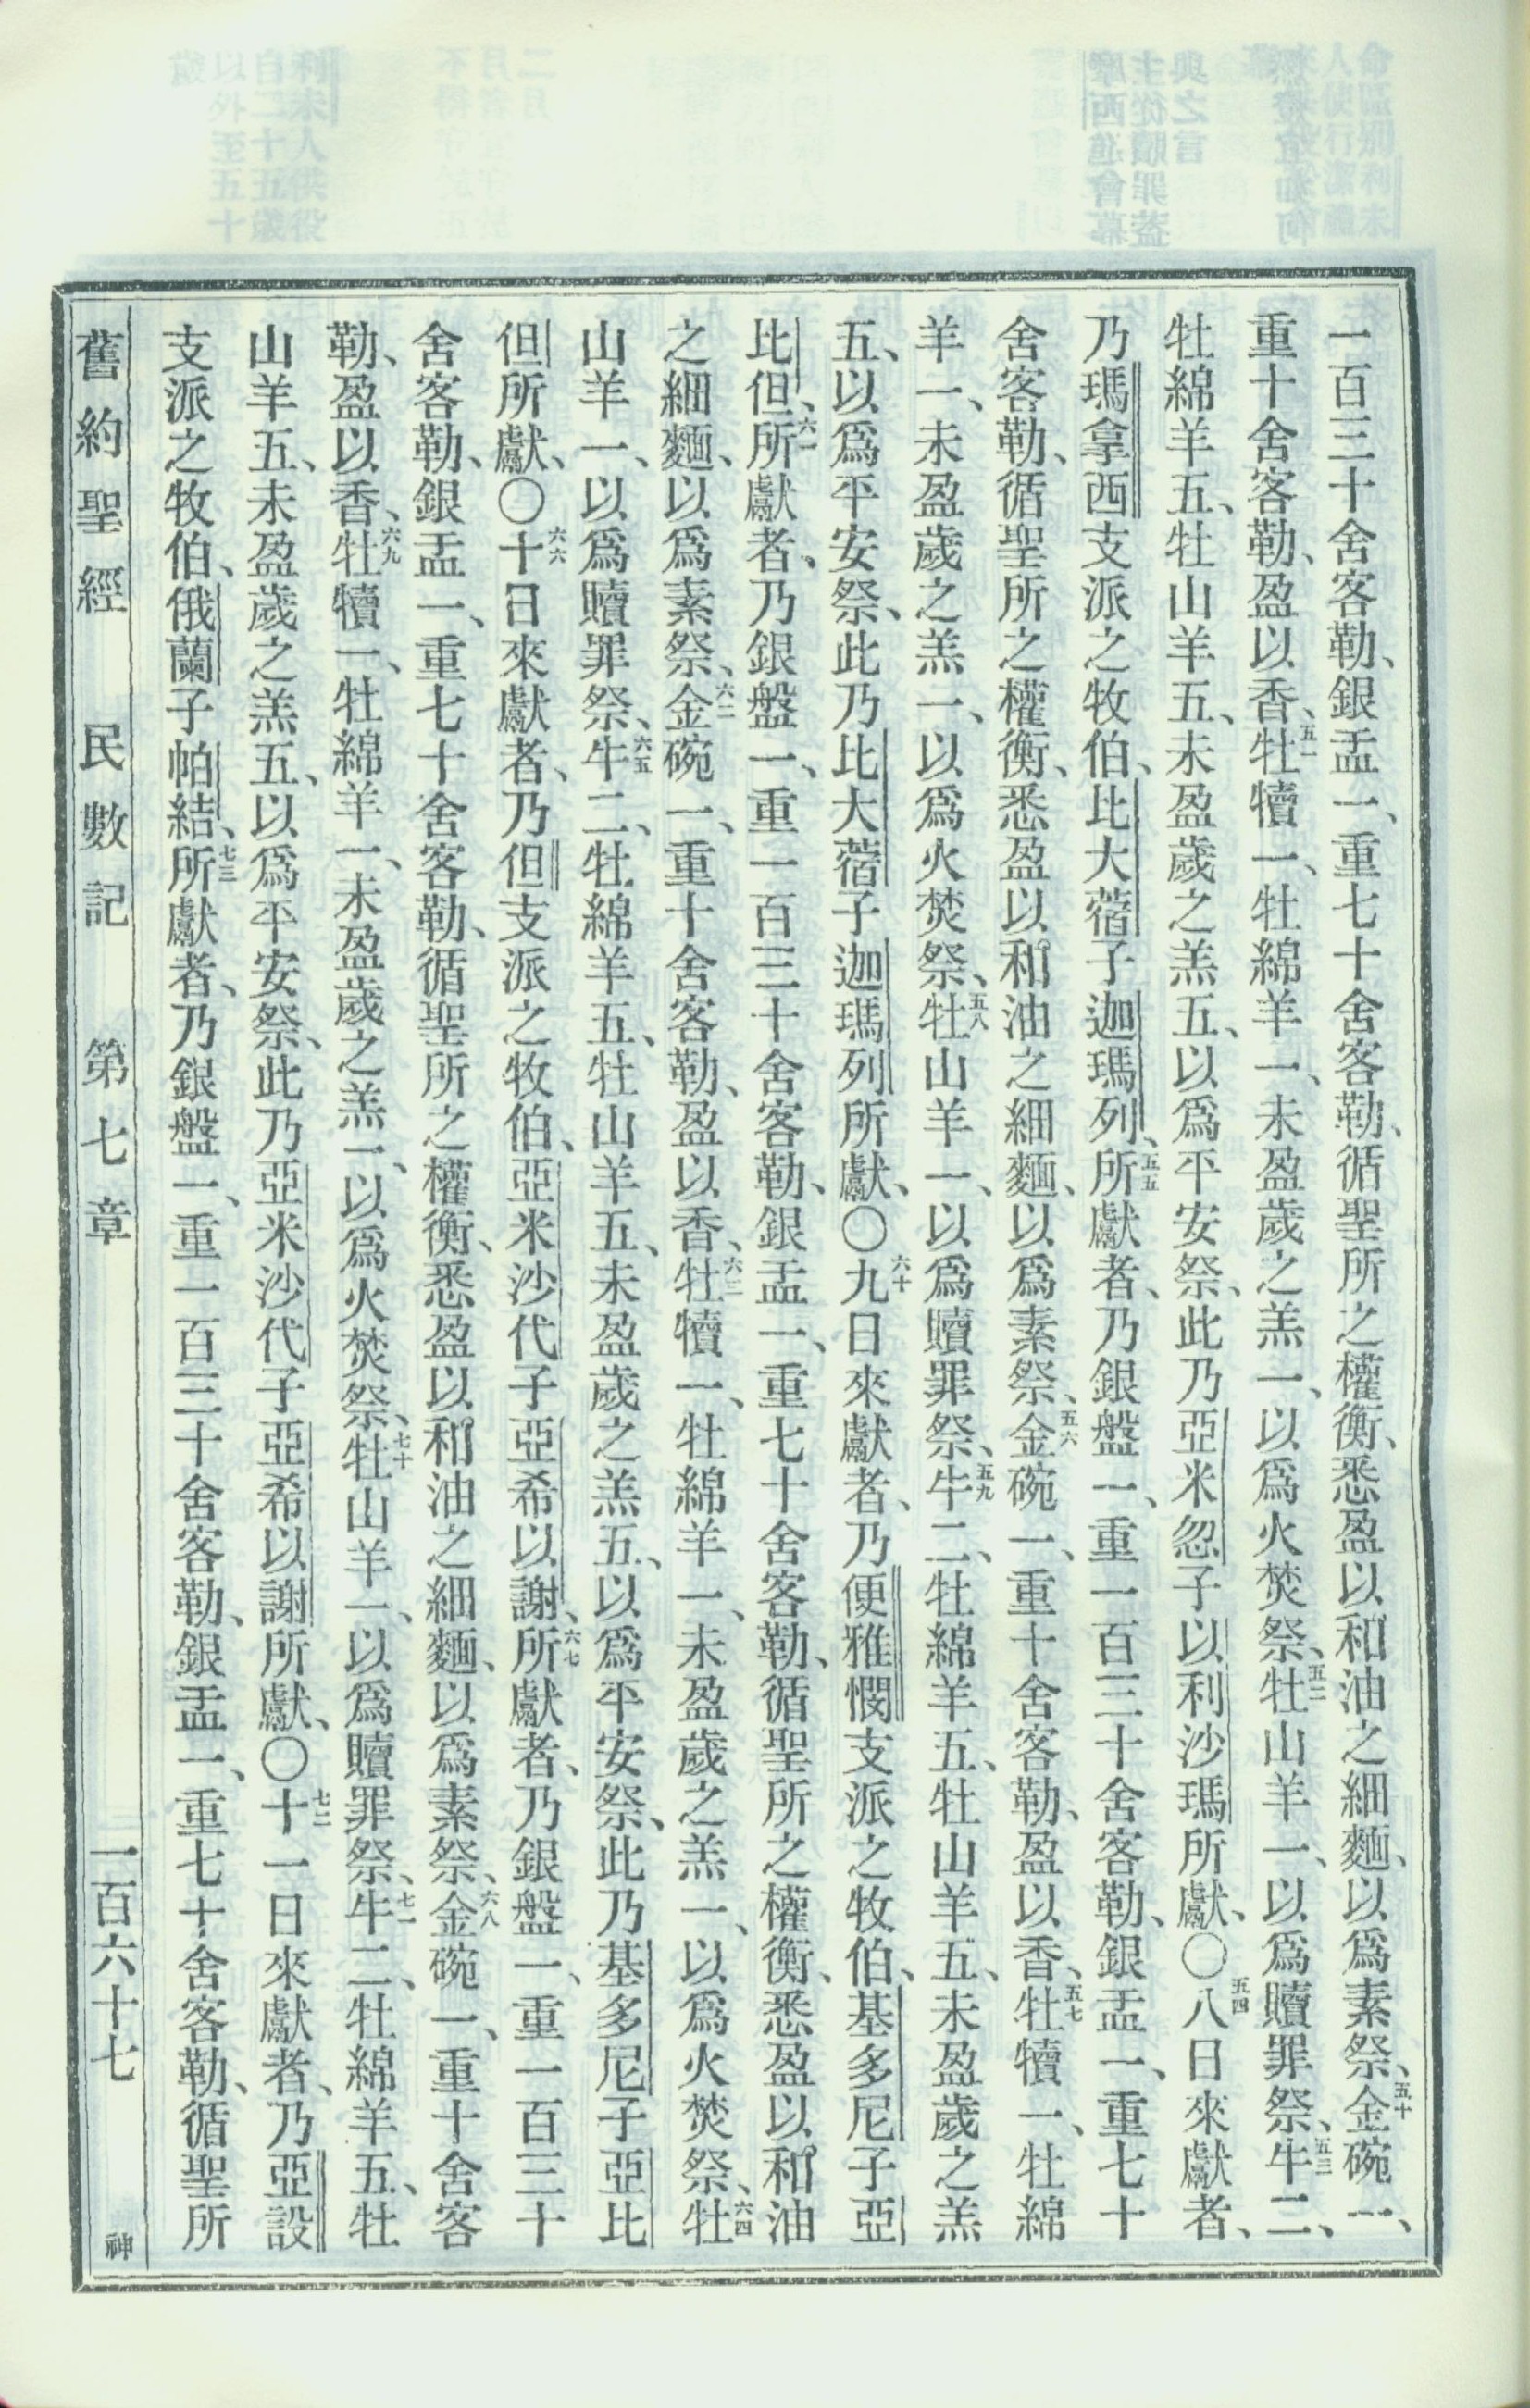 一百三十舍客勒、銀盂一、重七十舍客勒、循聖所之權衡、悉盈以和油之細麵、以爲素祭、五十金碗一、
重十舍客勒、盈以香、五一牡犢一、牡綿羊一、未盈歲之羔一、以爲火焚祭、五二牡山羊一、以爲贖罪祭、五三牛二、
牡綿羊五、牡山羊五、未盈歲之羔五、以爲平安祭、此乃亞米忽子以利沙瑪所獻、〇五四八日來獻者、
乃瑪拿西支派之牧伯、比大蓿子迦瑪列、五五所獻者、乃銀盤一、重一百三十舍客勒、銀盂一、重七十
舍客勒、循聖所之權衡、悉盈以和油之細麵、以爲素祭、五六金碗一、重十舍客勒、盈以香、五七牡犢一、牡綿
羊一、未盈歲之羔一、以爲火焚祭、五八牡山羊一、以爲贖罪祭、五九牛二、牡綿羊五、牡山羊五、未盈歲之羔
五、以爲平安祭、此乃比大蓿子迦瑪列所獻、〇六十九日來獻者、乃便雅憫支派之牧伯、基多尼子亞
比但、六一所獻者、乃銀盤一、重一百三十舍客勒、銀盂一、重七十舍客勒、循聖所之權衡、悉盈以和油
之細麵、以爲素祭、六二金碗一、重十舍客勒、盈以香、六三牡犢一、牡綿羊一、未盈歲之羔一、以爲火焚祭、六四牡
山羊一、以爲贖罪祭、六五牛二、牡綿羊五、牡山羊五、未盈歲之羔五、以爲平安祭、此乃基多尼子亞比
但所獻、〇六六十日來獻者、乃但支派之牧伯、亞米沙代子亞希以謝、六七所獻者、乃銀盤一、重一百三十
舍客勒、銀盂一、重七十舍客勒、循聖所之權衡、悉盈以和油之細麵、以爲素祭、六八金碗一、重十舍客
勒、盈以香、六九牡犢一、牡綿羊一、未盈歲之羔一、以爲火焚祭、七十牡山羊一、以爲贖罪祭、七一牛二、牡綿羊五、牡
山羊五、未盈歲之羔五、以爲平安祭、此乃亞米沙代子亞希以謝所獻、〇七二十一日來獻者、乃亞設
支派之牧伯、俄蘭子帕結、七三所獻者、乃銀盤一、重一百三十舍客勒、銀盂一、重七十舍客勒、循聖所
舊約聖經　民數記　第七章　一百六十七　神